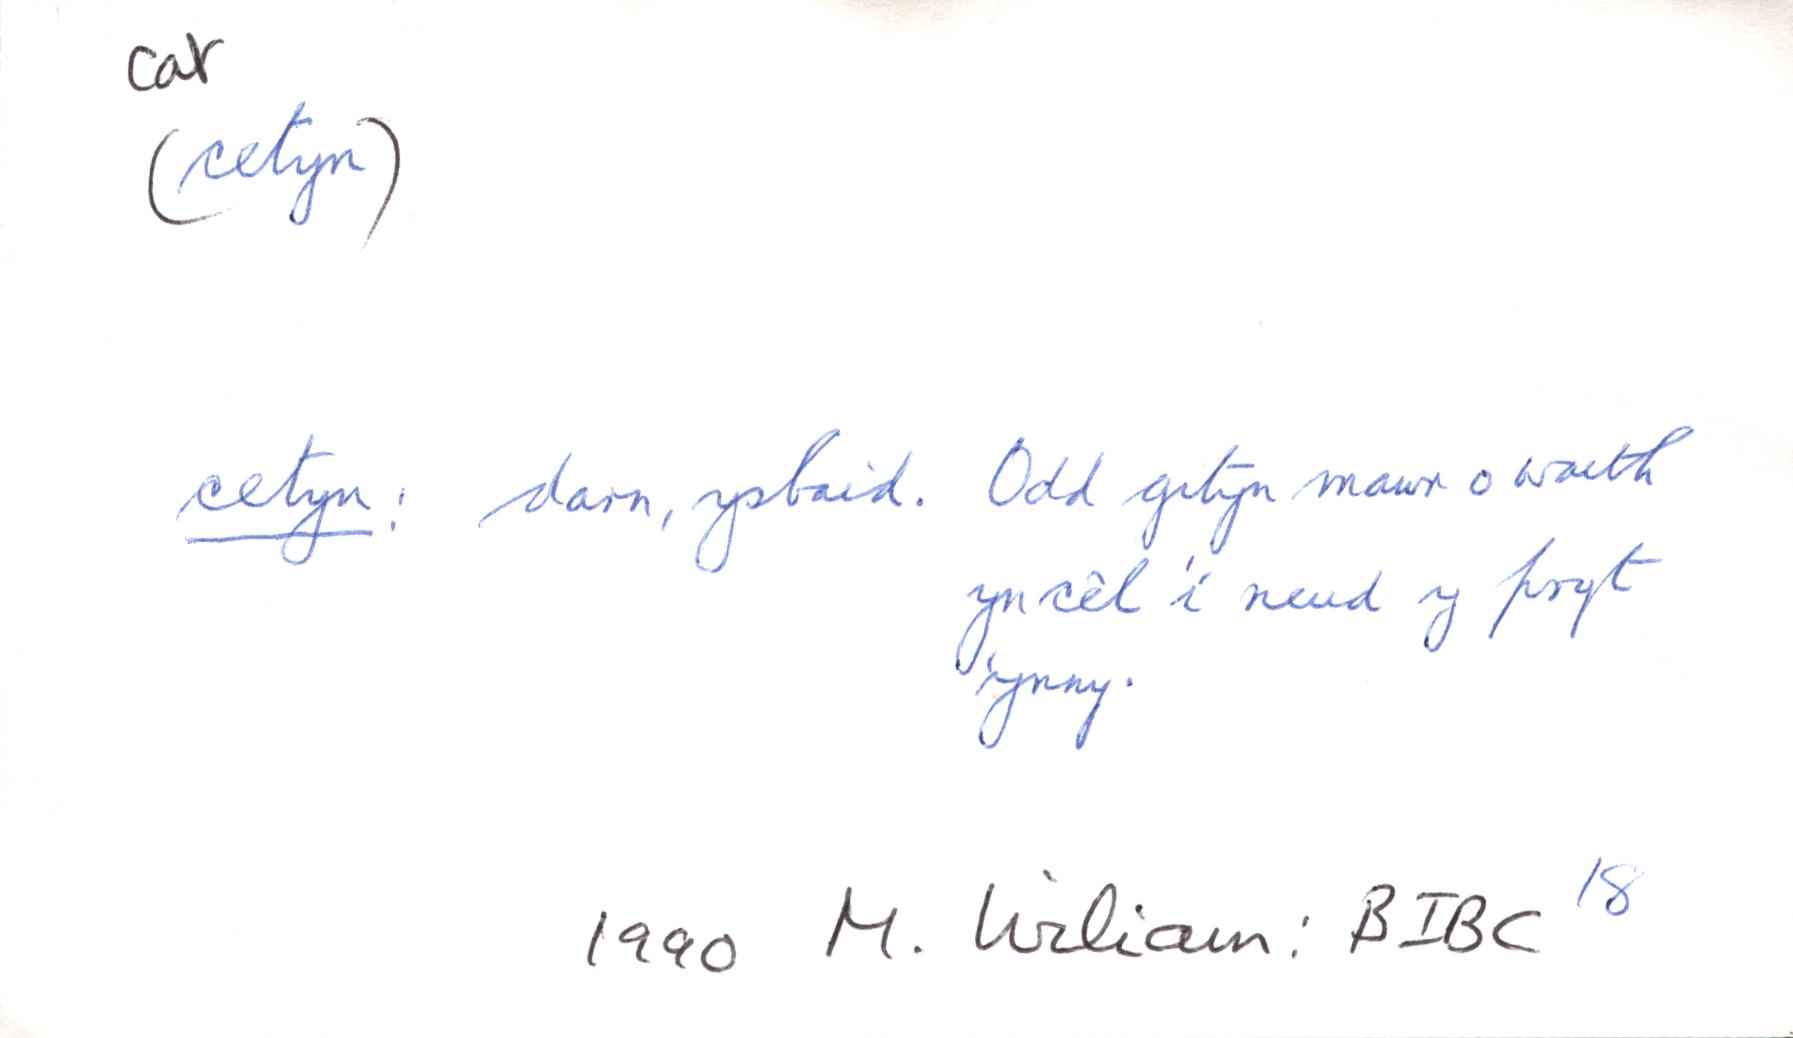 cat
(cetyn)
cetyn: darn, ysbaid. Odd getyn mawr o waeth
yn cêl 'i neud y pryt
'ynny.
1990 M. Wiliam: BIBC 18